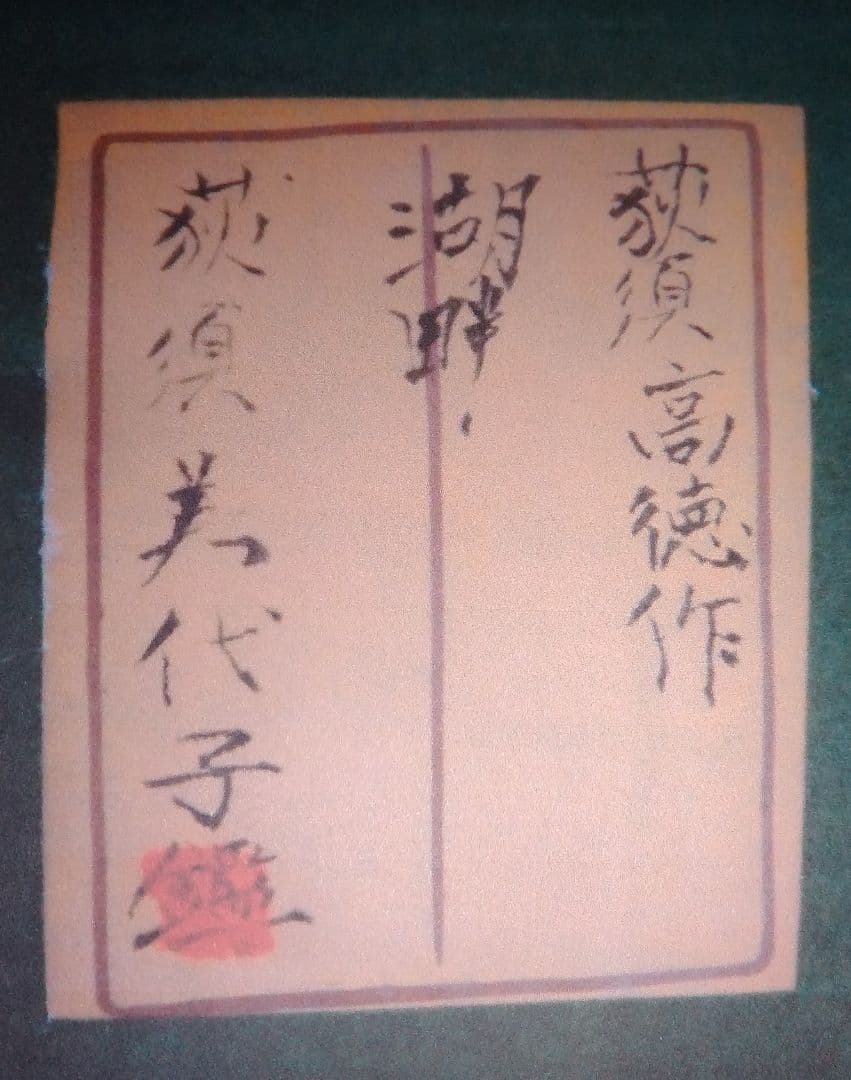 荻須高徳作
湖畔、
荻須美代子鑑